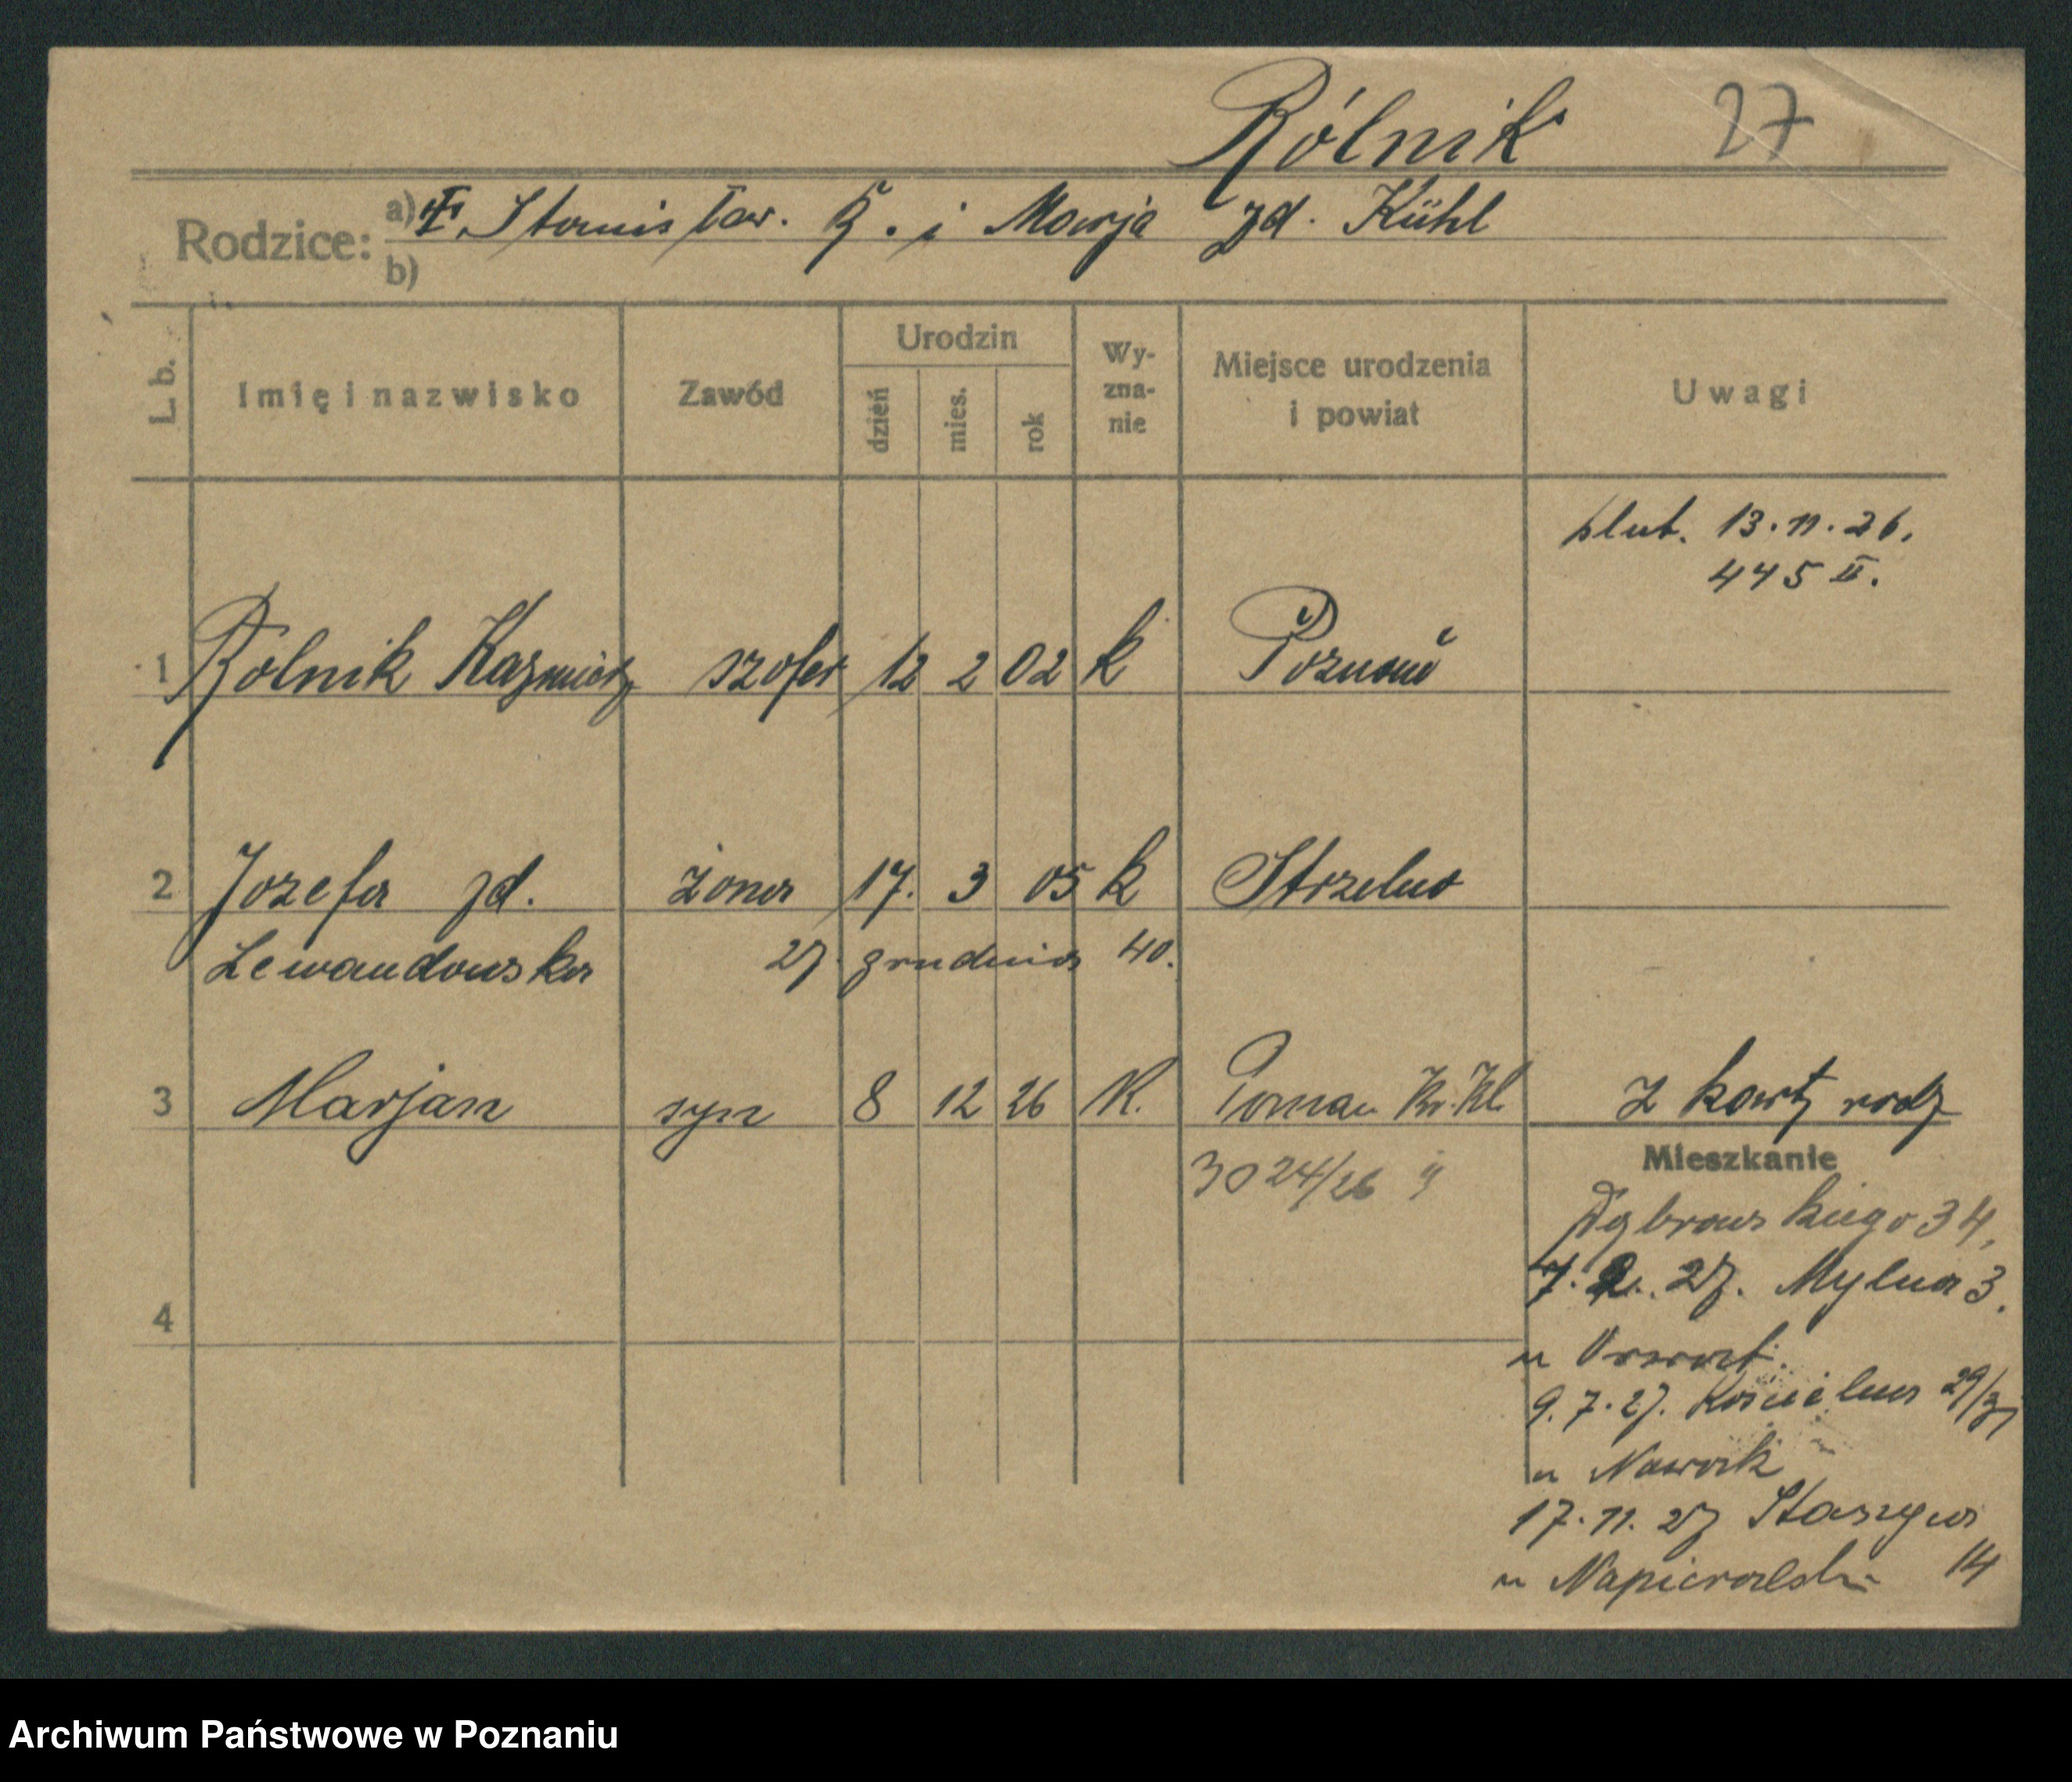 Rólnik 27
Rodzice: a) Stanisław. R. i Marja zd. Kühl
b)
L. b. Imię i nazwisko Zawód Urodzin dzień mies. rok Wyznanie Miejsce urodzenia i powiat Uwagi
ślub. 13.11.26.
445 II.
1 Rólnik Kazmierz szofer 12 2 02 k Poznań
2 Jozefa zd. żona 17. 3 05 k Strzelno
Lewandowska 27. grudnia 40.
3 Marjan syn 8 12 26 K. Poznań Z karty rodz
Mieszkanie
3024/26 II
Dąbrowskiego 34,
7. 2. 27. Mylna 3.
4
u
9.7.27. Kościelna 29/31
u Nawrok
17.11.27 Staszyca
u Napieralski 14
Archiwum Państwowe w Poznaniu